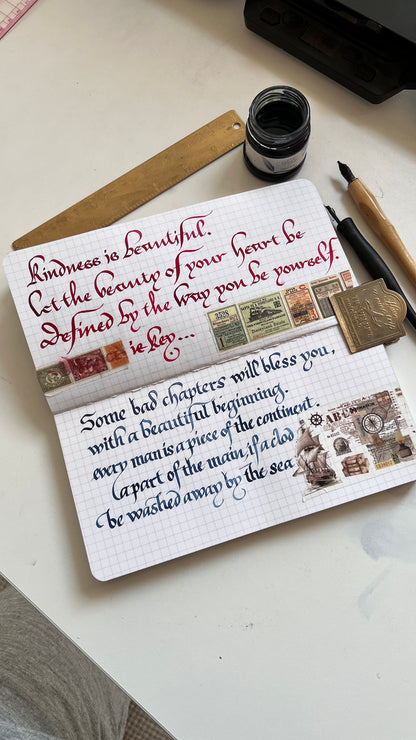 kindness is beautiful.
let the beauty of your heart be
defined by the way you be yourself.
ie key...
Some bad chapters will bless you,
with a beautiful beginning.
every man is a piece of the continent.
(apart of the main, if a clod
be washed away by the sea
ABC